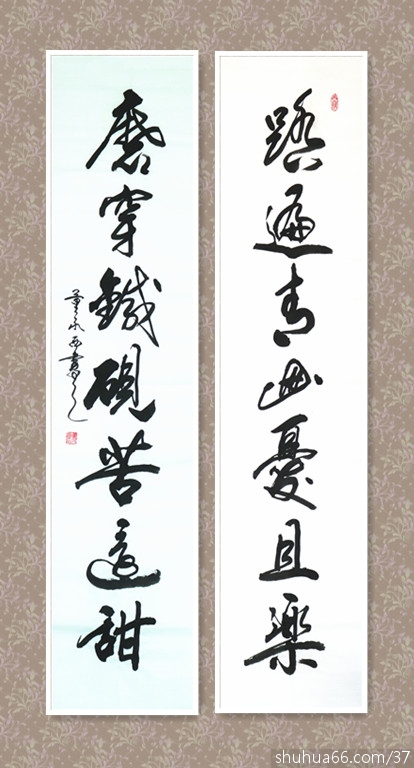 踏遍青山憂且樂
磨穿鐵硯苦還甜
董永西書
shuhua66.com/37